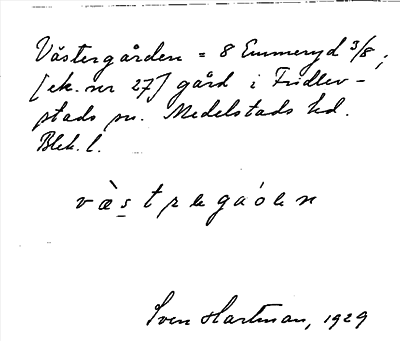 Västergården = 8 Emmeryd 3/8;
[ek. nr 27] gård i Fridlev-
stads sn. Medelstads hd.
Blek. l.
væ̀stregáɷen
Sven Hartman, 1929